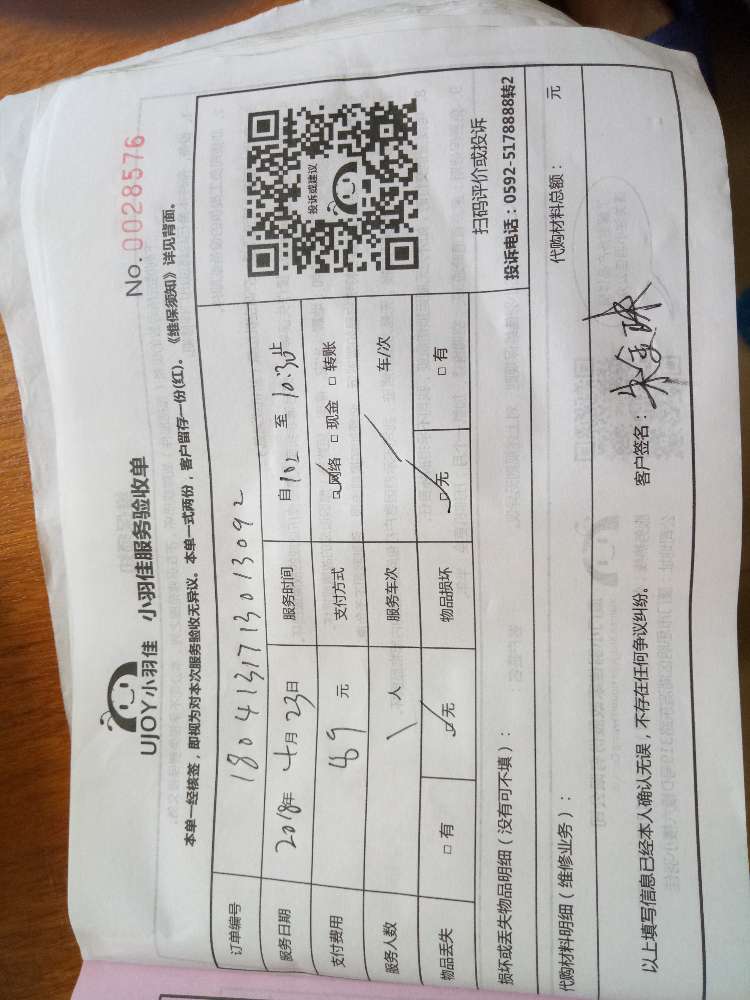 UJOY小羽佳 小羽佳服务验收单
No. 0028576
本单一经核签，即视为对本次服务验收无异议。本单一式两份，客户留存一份(红)。《维保须知》详见背面。
订单编号 1804131713013092
投诉或建议
服务日期 2018年 4月 23日 服务时间 自 至 10:30止
支付费用 89 元 支付方式 ☑网络 □现金 □转账
服务人数 人 服务车次 / 车/次
物品丢失 □有 ☑无 物品损坏 ☑无 □有
扫码评价或投诉
投诉电话：0592-5178888转2
损坏或丢失物品明细（没有可不填）：
代购材料明细（维修业务）： 代购材料总额： 元
以上填写信息已经本人确认无误，不存在任何争议纠纷。 客户签名：